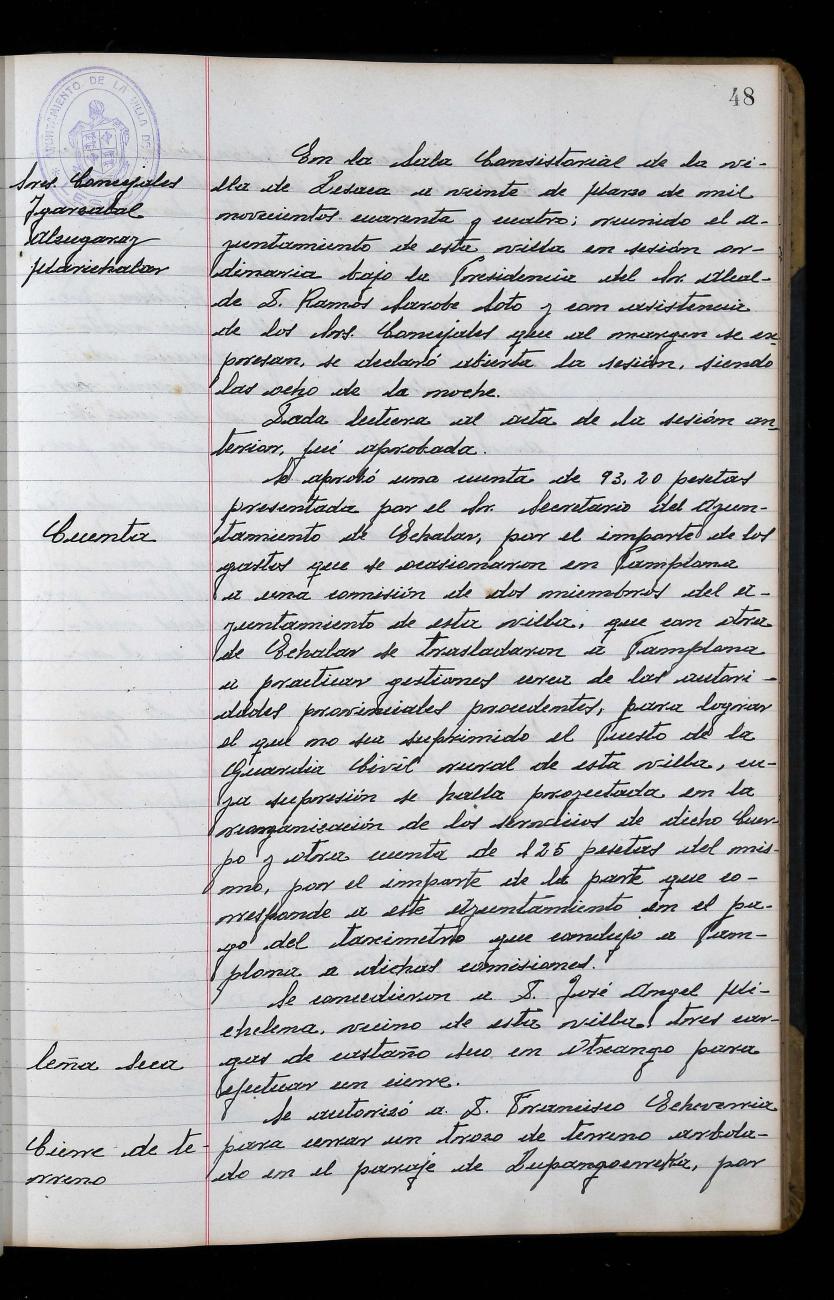 48
AYUNTAMIENTO DE LA VILLA DE
Sres. Concejales
Ygarzabal
Alzugaray
Marichalar
En la Sala Consistorial de la vi-
lla de Lesaca a veinte de Marzo de mil
novecientos cuarenta y cuatro; reunido el a-
yuntamiento de esta villa en sesión or-
dinaria bajo la Presidencia del Sr. Alcal-
de D. Ramós Sarobe Soto y con asistencia
de los Srs. Concejales que al margen se ex-
presan, se declaró abierta la sesión, siendo
las ocho de la noche.
Dada lectura al acta de la sesión an-
terior, fué aprobada.
Cuenta
Se aprobó una cuenta de 93,20 pesetas
presentada por el Sr. Secretario del Ayun-
tamiento de Echalar, por el importe de los
gastos que se ocasionaron en Pamplona
a una comisión de dos miembros del a-
yuntamiento de esta villa, que con otra
de Echalar se trasladaron a Pamplona
a practicar gestiones cerca de las autori-
dades provinciales procedentes, para lograr
el que no sea suprimido el Puesto de la
Guardia Civil rural de esta villa, cu-
ya supresión se halla proyectada en la
reorganización de los servicios de dicho Cuer-
po y otra cuenta de 125 pesetas del mis-
mo, por el importe de la parte que co-
rresponde a este Ayuntamiento en el pa-
go del taximetro que condujo a Pam-
plona a dichas comisiones.
leña seca
Se concedieron a D. José Angel Mi-
chelena, vecino de esta villa, tres car-
gas de castaño seco en Otxango para
efectuar un cierre.
Cierre de te-
rreno
Se autorizó a D. Francisco Echeverria
para cerrar un trozo de terreno arbola-
do en el paraje de Lupangoerreka, por